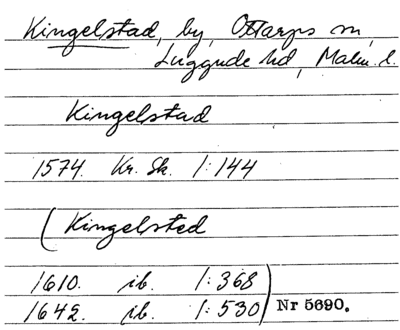 Kingelstad, by, Ottarps sn,
Luggude hd, Malm. l.
Kingelstad
1574. Kr. Sk. 1:144
(Kingelsted
1610. ib. 1:368)
1642. ib. 1:530) Nr 5690.